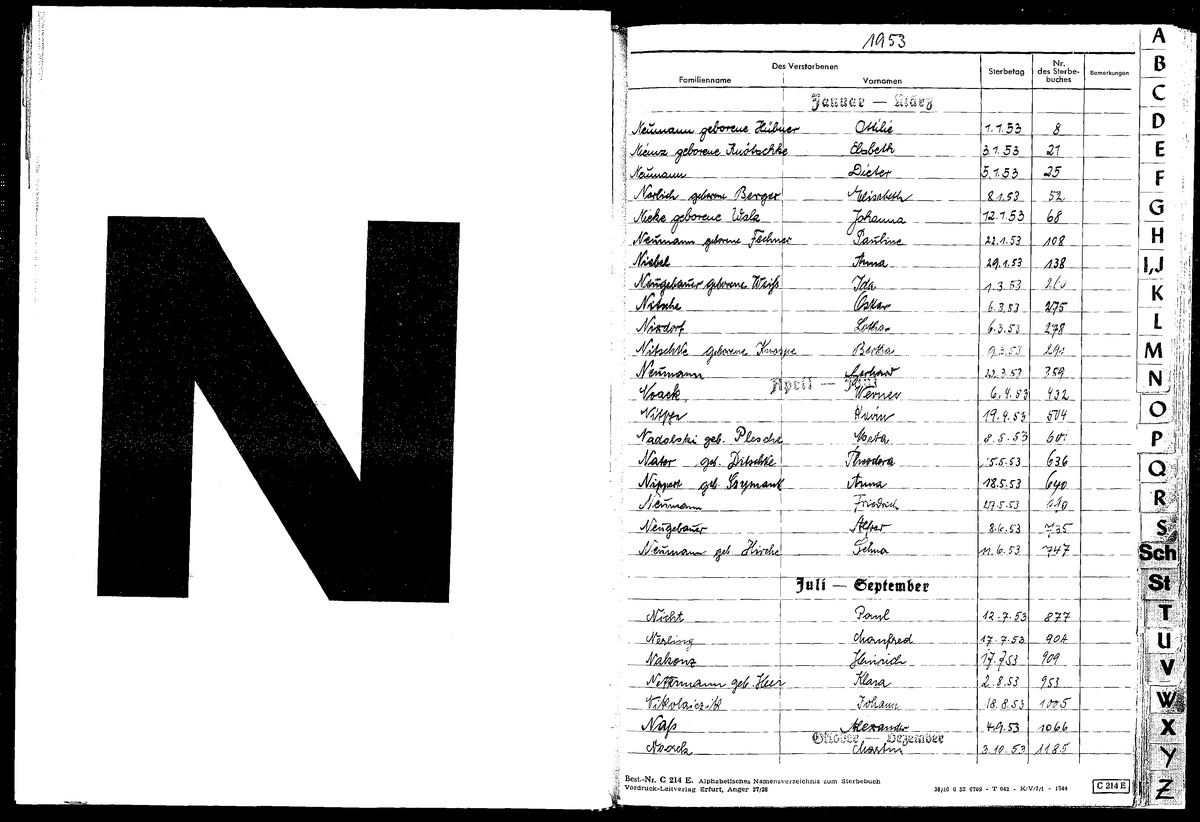 N
1953
Des Verstorbenen
Familienname Vornamen Sterbetag Nr. des Sterbebuches Bemerkungen
Januar — März
Neumann geborene Hübner Ottilie 1.1.53 8
Nienz geborene Knötschke Elsbeth 3.1.53 21
Neumann Dieter 5.1.53 25
Narlich geborene Berger Elisabeth 8.1.53 52
Nicke geborene Walz Johanna 12.1.53 68
Neumann geborene Fechner Pauline 22.1.53 108
Niebel Anna 29.1.53 138
Neugebauer geborene Weiß Ida 1.3.53
Nitsche Oskar 6.3.53 275
Nixdorf Lothar 6.3.53 278
Nitschke geborene Knappe Bertha 9.3.53
Neumann Gerhard 22.3.53 359
April — Juni
Noack Werner 6.4.53 432
19.4.53 504
Nadolski geb. Plesche 8.5.53
Nater geb. Ditschke Theodora 5.5.53 636
Nippert geb. Szymank Anna 18.5.53 640
Neumann Friedrich 27.5.53
Neugebauer Alfred 8.6.53 735
Neumann geb. Hirche Selma 11.6.53 747
Juli — September
Nicht Paul 12.7.53 877
Nerling Manfred 17.7.53 904
Nakonz Heinrich 17.7.53 909
geb. Heer Klara 2.8.53 953
Nikolaiczik Johann 18.8.53 1005
Naß Alexander 4.9.53 1066
Oktober — Dezember
Noack Martin 3.10.53 1185
Best.-Nr. C 214 E. Alphabetisches Namensverzeichnis zum Sterbebuch
Vordruck-Leitverlag Erfurt, Anger 37/38
C 214 E
A
B
C
D
E
F
G
H
I,J
K
L
M
N
O
P
Q
R
S
Sch
St
T
U
V
W
X
Y
Z